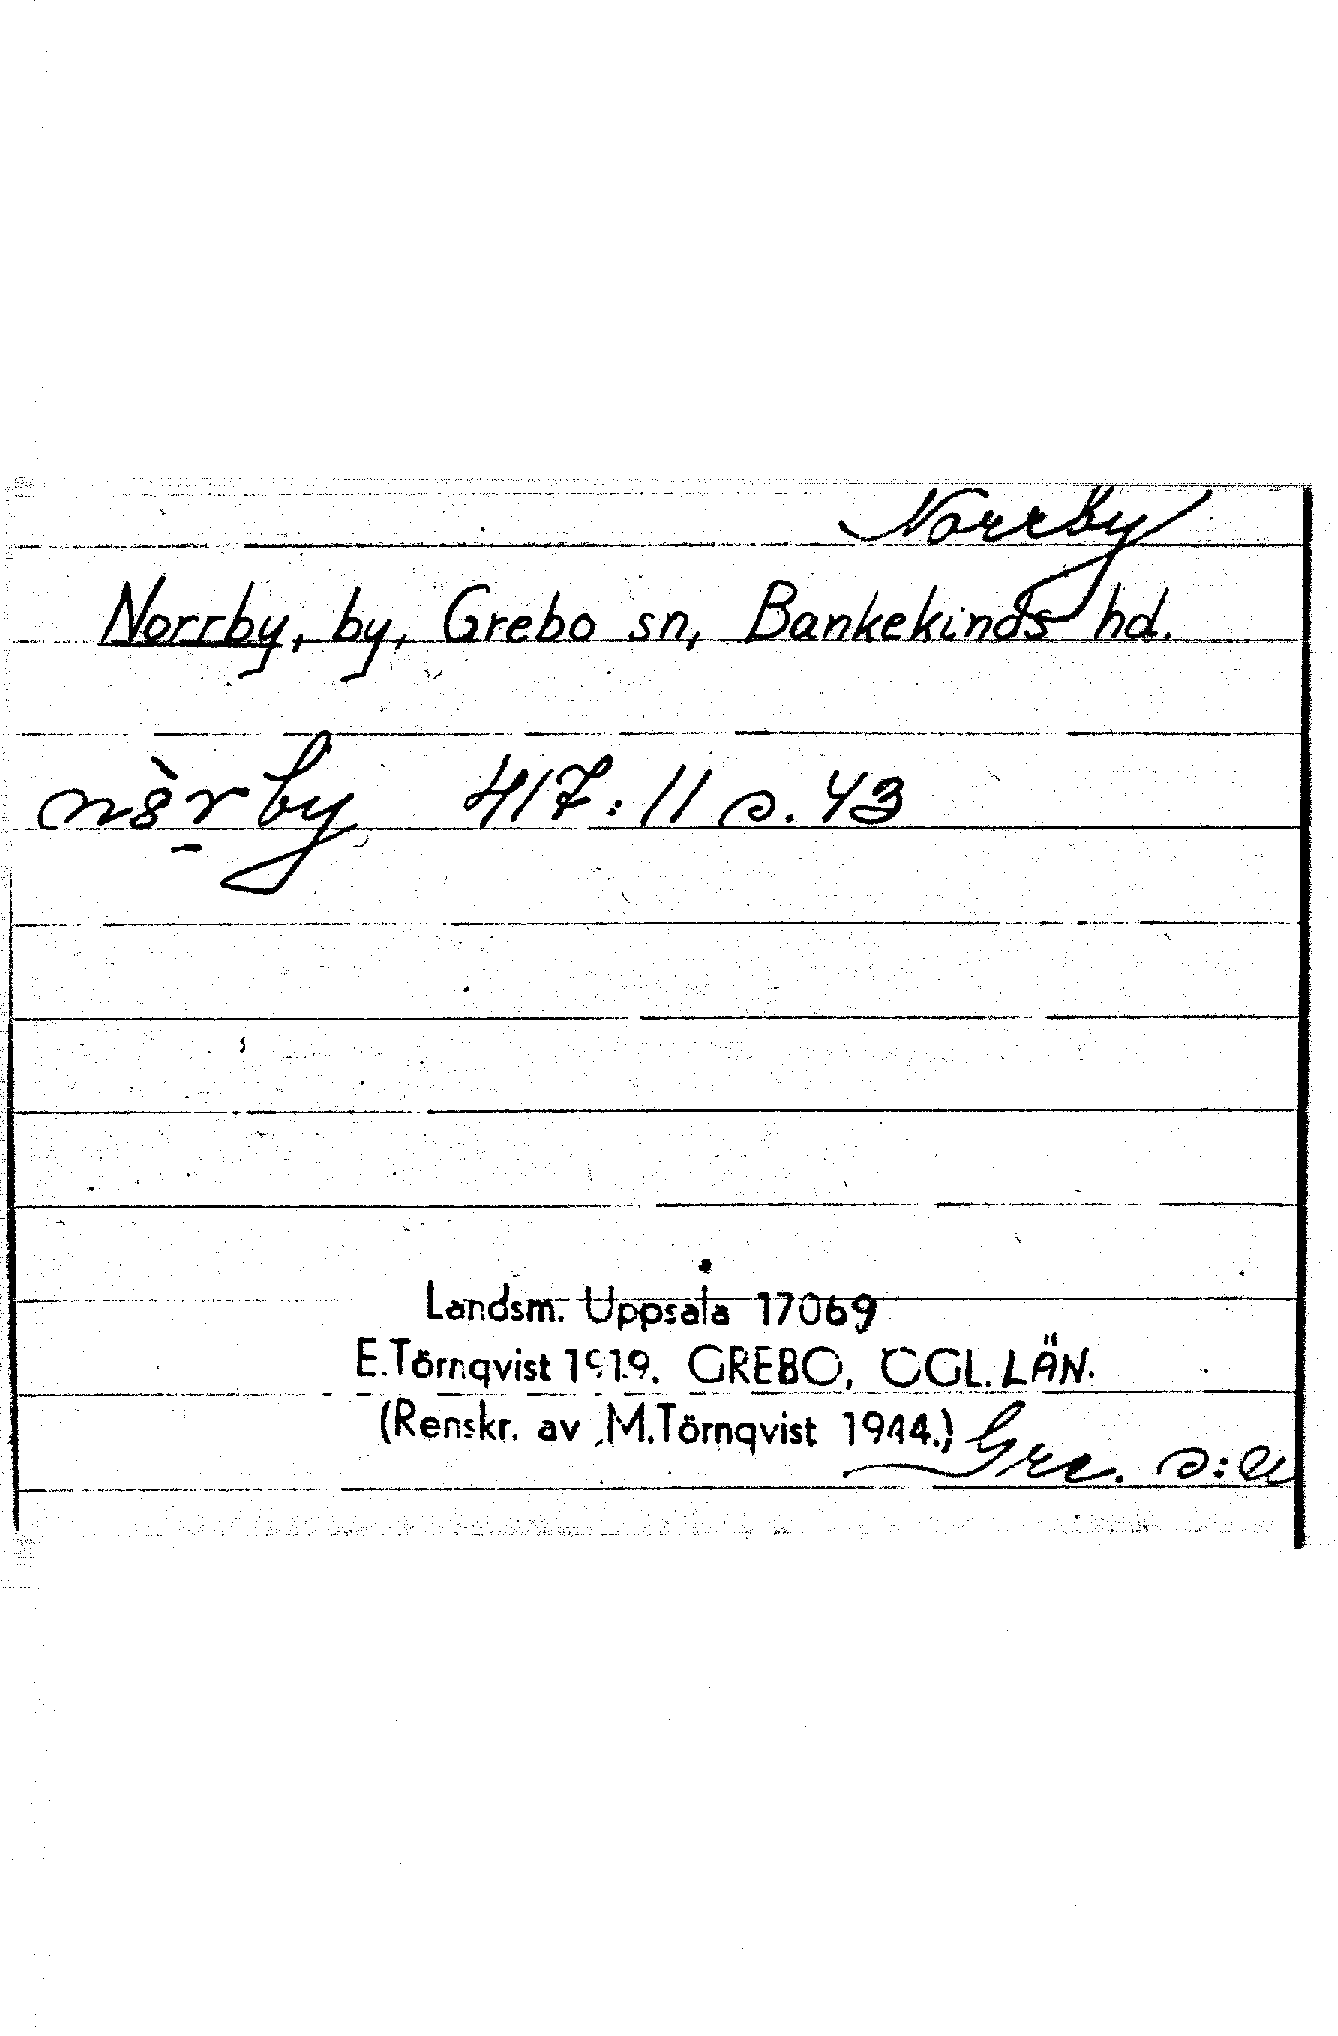 Norrby
Norrby, by, Grebo sn, Bankekinds hd.
417:11 s. 43
Landsm. Uppsala 17069
E.Törnqvist 1919. GREBO, ÖGL. LÄN.
(Renskr. av M.Törnqvist 1944.)